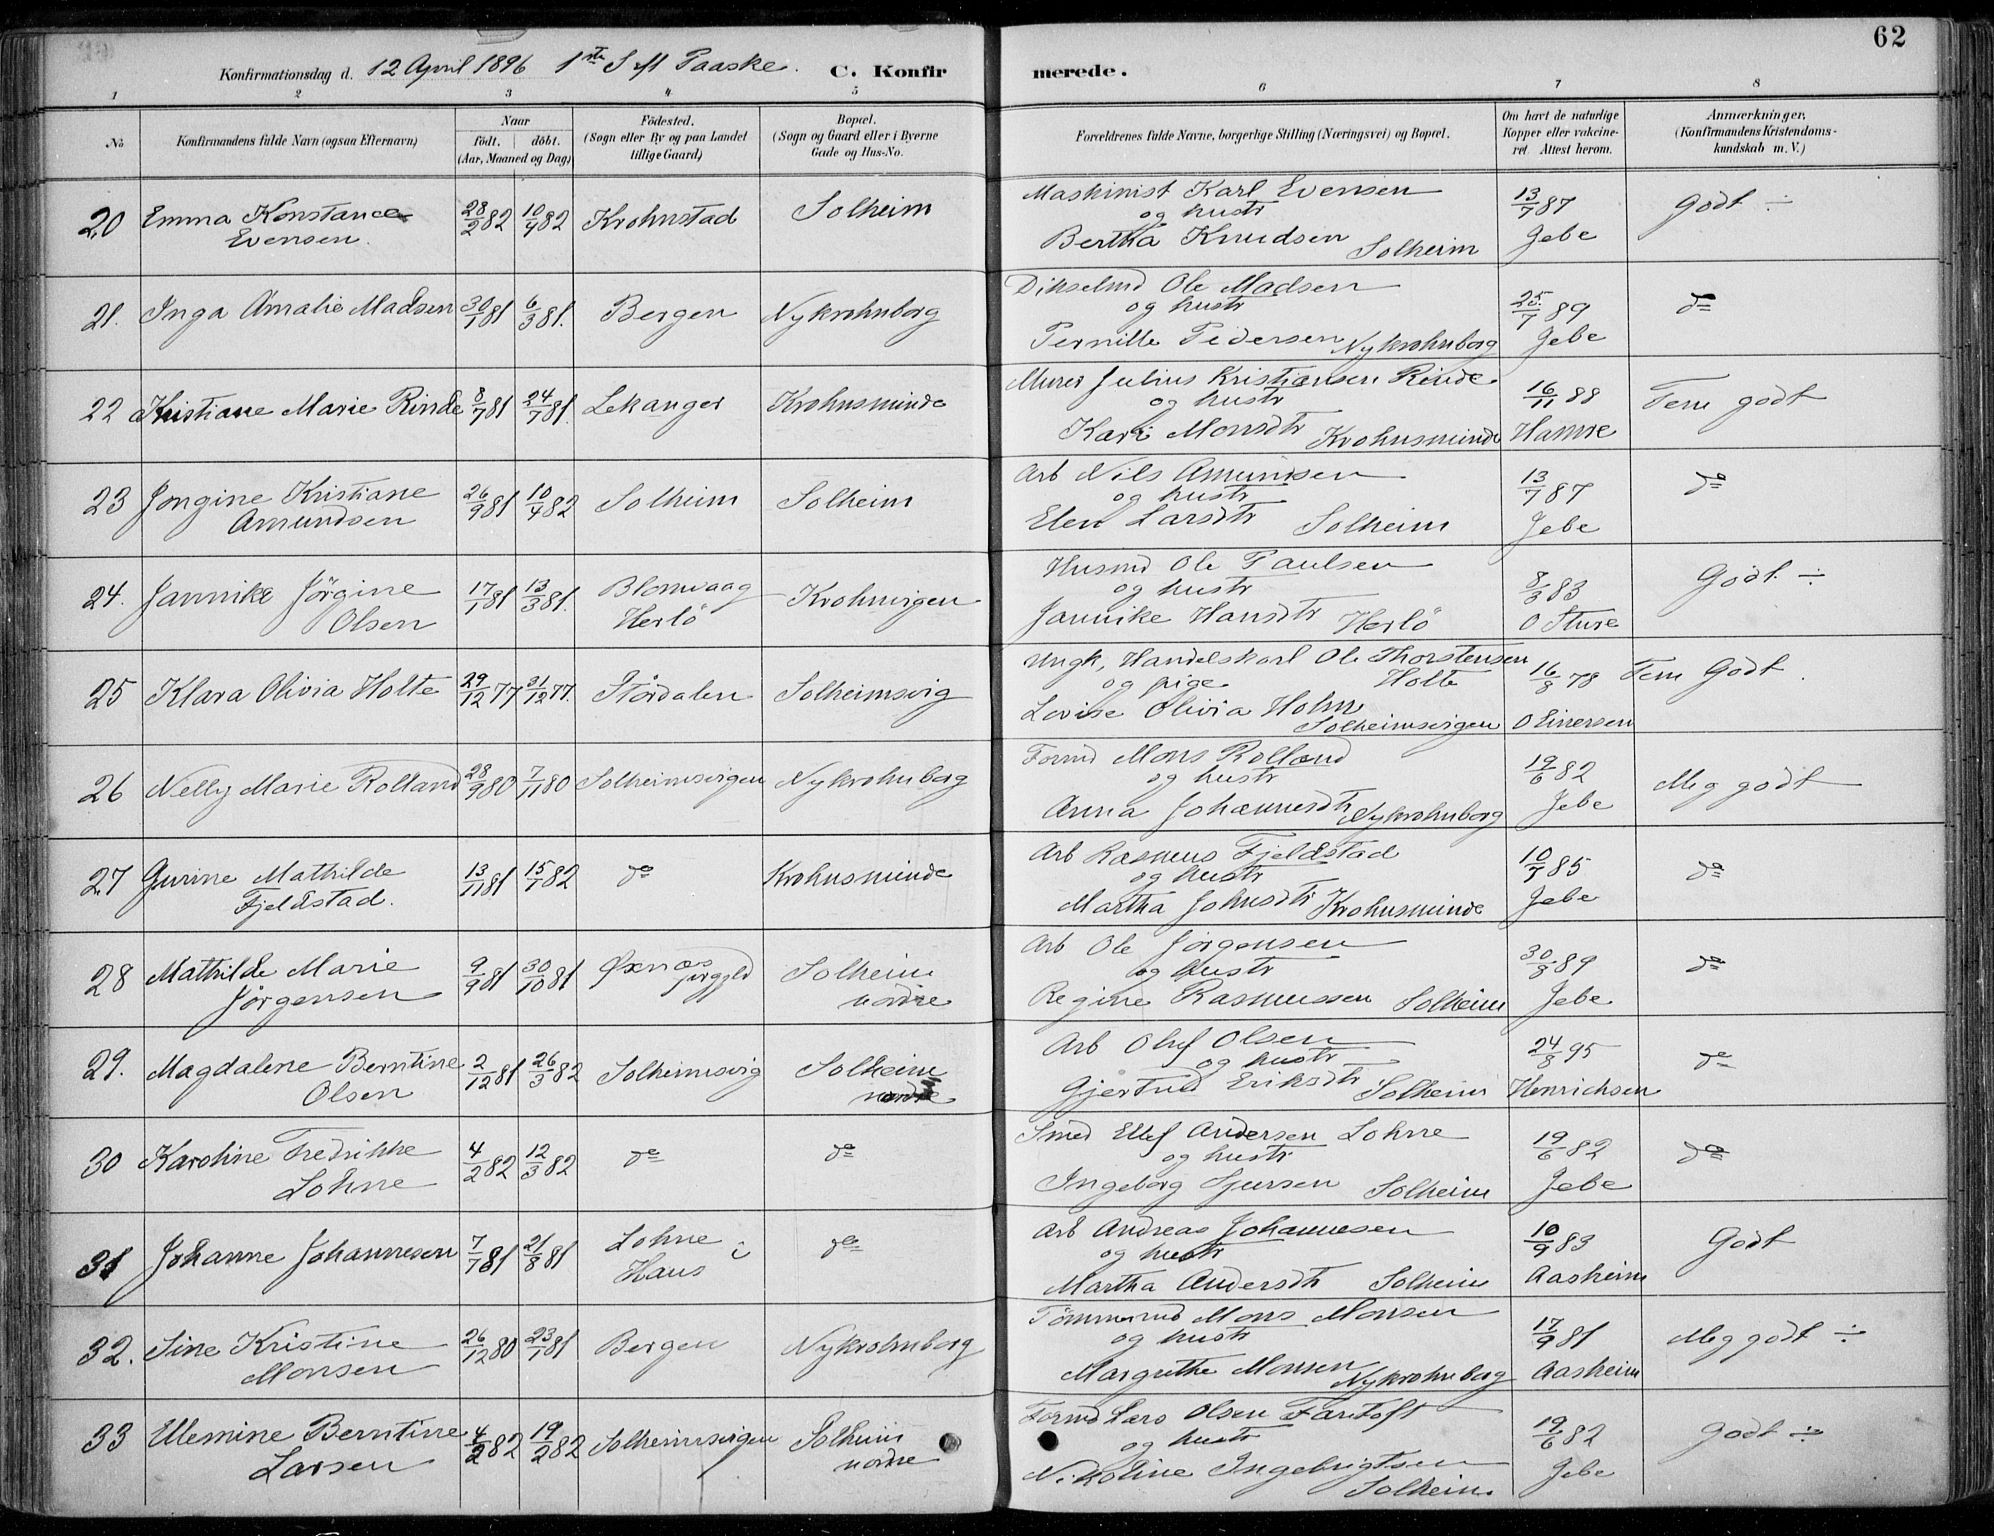 62
Konfirmationsdag d. 12 April 1896 1ste S M Paaske. C. Konfir merede.
1 2 3 4 5 6 7 8
No Konfirmandens fulde Navn (ogsaa Efternavn) Naar født. døbt. (Aar, Maaned og Dag) Födested. (Sogn eller By og paa Landet tillige Gaard) Bopæl. (Sogn og Gaard eller i Byerne Gade og Hus-No. Forældrenes fulde Navne, borgerlige Stilling (Næringsvei) og Bopæl. Om havt de naturlige Kopper eller vakcineret. Attest herom. Anmærkninger, (Konfirmandens Kristendomskundskab m. V.)
20 Emma Konstance Evensen. 28/2 82 10/4 82 Krohnstad Solheim Maskinist Karl Evensen
og hustr
Bertha Knudsen Solheim 13/7 87 Jebe Godt ÷
21. Inga Amalie Madsen 30/1 81 6/3 81. Bergen Nykrohnborg Dikselmd Ole Madsen
og hustr
Pernille Pedersen Nykrohnborg 25/7 89 Jebe do
22 Kristiane Marie Rinde 8/7 81 24/7 81. Lekanger Krohnsminde Murer Julius Kristiansen Rinde
og hustr
Kari Monsdtr Krohnsminde 16/11 88 Hamre Tem godt
23 Jongine Kristiane Amundsen 26/9 81 10/4 82 Solheim Solheim Arb Nils Amundsen
og hustr
Elen Larsdtr Solheim 13/7 87 Jebe do
24. Jannike Jörgine Olsen 17/1 81 13/3 81. Blomvaag Herlö Krohnvigen Husmd Ole Paulsen
og hustr
Jannike Hansdtr Herlö 8/8 83 O Sture Godt ÷
25 Klara Olivia Holte 29/12 77 31/12 77. Stördalen Solheimsvig Ungk, Handelskarl Ole Thorstensen Holte
og pige
Lovise Olivia Holm
Solheimsvigen 16/8 78 O Einersen Tem Godt.
26 Nelly Marie Rolland 28/9 80 7/11 80 Solheimsvigen Nykrohnborg Formd Mons Rolland
og hustr
Anna Johannesdtr Nykrohnborg 19/6 82 Jebe Meg godt
27 Gurine Mathilde Fjeldstad. 13/11 81 15/1 82 do Krohnsminde Arb Rasmus Fjeldstad
og hustr
Martha Johnsdtr Krohnsminde 10/7 85 Jebe do
28 Mathilde Marie Jörgensen 9/9 81 30/10 81 Øxnæs prggld Solheim nordre Arb Ole Jörgensen
og hustr
Regine Rasmussen Solheim 30/8 89 Jebe do
29. Magdalene Berntine Olsen 2/12 81 26/3 82 Solheimsvig Solheim nordre Arb Oluf Olsen
og hustr
Gjertrud Eriksdtr Solheim 24/8 95 Henrichsen do
30 Karoline Fredrikke Lohne 4/2 82 12/3 82 do do Smed Ellef Andersen Lohne
og hustr
Ingeborg Sjursen Solheim 19/6 82 Jebe do
31 Johanne Johannesen 7/7 81 21/8 81 Lohne i Haus do Arb Andreas Johannesen
og hustr
Martha Andersdtr Solheim 10/9 83 Aasheim Godt
32. Sine Kristine Monsen 26/12 80 23/1 81 Bergen Nykrohnborg Tömmermd Mons Monsen
og hustr
Margrethe Monsen Nykrohnborg 17/9 81 Aasheim Meg godt ÷
33 Ulemine Berntine Larsen 4/2 82 19/2 82 Solheimsvigen Solheim nordre Formd Lars Olsen Fartoft
og hustr
Nikoline Ingebrigtsen
Solheim. 19/6 82 Jebe Godt ÷